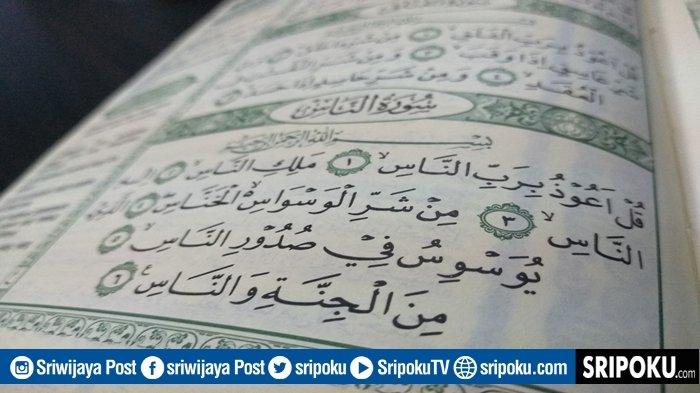 قُلْ اَعُوْذُ بِرَبِّ الْفَلَقِ
شَرِّ غَاسِقٍ اِذَا وَقَبَ ٣ وَمِنْ شَرِّ
الْعُقَدِ ٤ وَمِنْ شَرِّ حَاسِدٍ اِذَا حَسَدَ
سُوْرَةُ النَّاسِ
بِسْمِ اللّٰهِ الرَّحْمٰنِ الرَّحِيْمِ
قُلْ اَعُوْذُ بِرَبِّ النَّاسِۙ ١ مَلِكِ النَّاسِۙ ٢
النَّاسِۙ ٣ مِنْ شَرِّ الْوَسْوَاسِ ەۙ الْخَنَّاسِۖ ٤ الَّذِيْ
يُوَسْوِسُ فِيْ صُدُوْرِ النَّاسِۙ ٥
مِنَ الْجِنَّةِ وَالنَّاسِ ٦
Sriwijaya Post sriwijaya Post sripoku SripokuTV sripoku.com SRIPOKU.com